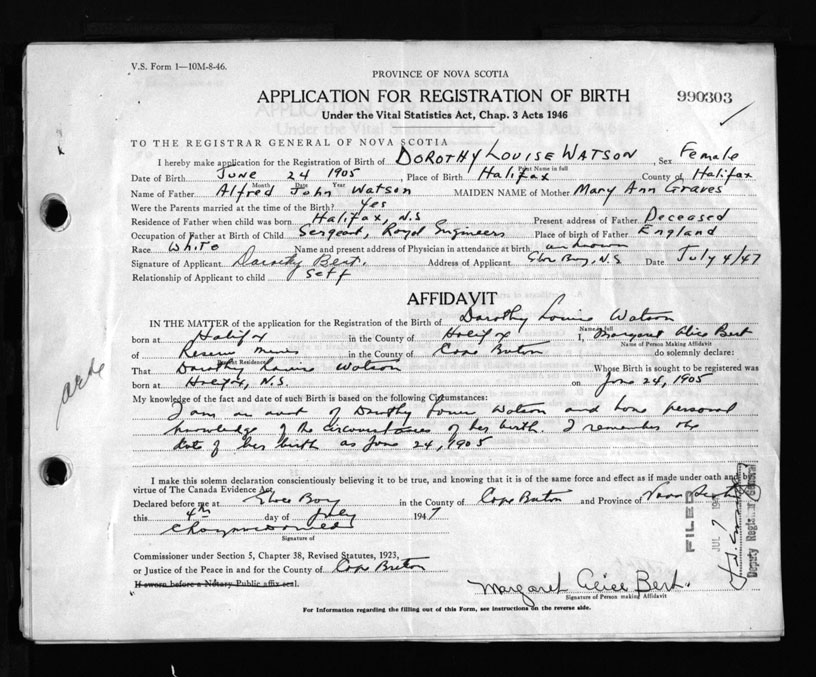 V.S. Form 1—10M-8-46.
PROVINCE OF NOVA SCOTIA
APPLICATION FOR REGISTRATION OF BIRTH
990303
Under the Vital Statistics Act, Chap. 3 Acts 1946
TO THE REGISTRAR GENERAL OF NOVA SCOTIA
I hereby make application for the Registration of Birth of DOROTHY LOUISE WATSON, Sex Female
Print Name in full
Date of Birth June 24 1905, Place of Birth Halifax County of Halifax
Month Date Year
Name of Father Alfred John Watson MAIDEN NAME of Mother Mary Ann Graves
Were the Parents married at the time of the Birth? Yes
Residence of Father when child was born Halifax, N.S Present address of Father Deceased
Occupation of Father at Birth of Child Sergeant, Royal Engineers Place of birth of Father England
Race White Name and present address of Physician in attendance at birth unknown
Signature of Applicant Dorothy Bert. Address of Applicant Glace Bay, N.S Date July 4/47
Relationship of Applicant to child self
AFFIDAVIT
IN THE MATTER of the application for the Registration of Birth of Dorothy Louise Watson
Name in full
born at Halifax in the County of Halifax I, Margaret Alice Bert
Name of Person Making Affidavit
of Reserve Mines in the County of Cape Breton do solemnly declare:
Present Residence
That Dorothy Louise Watson Whose Birth is sought to be registered was
born at Halifax, N.S. on June 24, 1905
My knowledge of the fact and date of such Birth is based on the following Circumstances:
I am an aunt of Dorothy Louise Watson and have personal
knowledge of the circumstances of her birth. I remember the
date of her birth as June 24, 1905
I make this solemn declaration conscientiously believing it to be true, and knowing that it is of the same force and effect as if made under oath and by
virtue of The Canada Evidence Act.
Declared before me at Glace Bay in the County of Cape Breton and Province of Nova Scotia
this 4th day of July 1947
Signature of
Commissioner under Section 5, Chapter 38, Revised Statutes, 1923,
or Justice of the Peace in and for the County of Cape Breton
If sworn before a Notary Public affix seal.
Margaret Alice Bert.
Signature of Person making Affidavit
For Information regarding the filling out of this Form, see instructions on the reverse side.
FILED
JUL 7 194
Deputy Registrar General